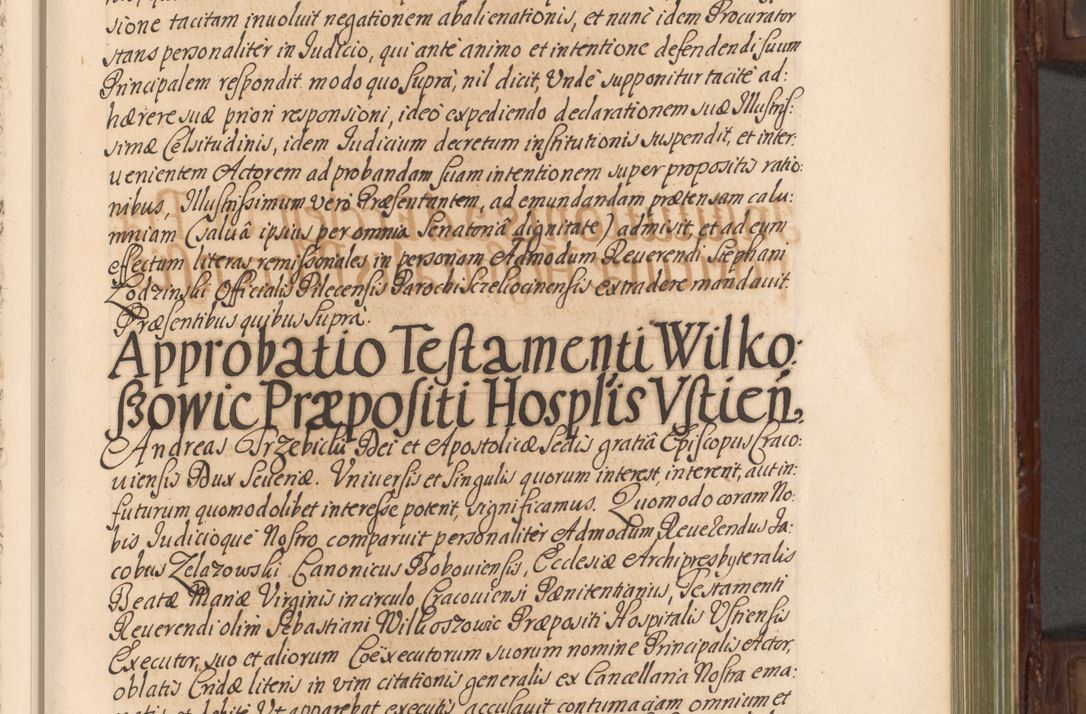 sione tacitam inuoluit negationem abalienationis, et nunc idem Procurator
stans personaliter in Iudicio, qui ante animo et intentione defendendi suum
Principalem respondit modo quo supra, nil dicit, Unde supponitur tacite ad:
hærere suæ priori responsioni, ideo expediendo declarationem suæ Illustris:
simæ Celsitudinis, idem Iudicium decretum institutionis suspendit, et inter:
uenientem Actorem ad probandam suam intentionem super propositis ratio:
nibus, Illustrissimum vero Præsentantem, ad emundandam prætensam calu:
mniam (salua ipsius per omnia Senatoria dignitate) admisit, et ad eum
effectum literas remissionales in personam Admodum Reuerendi Stephani
Lodzinski Officialis Pilecensis Parochi extradere mandauit.
Præsentibus quibus supra.
Approbatio Testamenti Wilko:
szowic Præpositi Hosplis Vstien.
Andreas Trzebicki Dei et Apostolicæ Sedis gratia Episcopus Craco:
uiensis Dux Seueriæ. Vniuersis et singulis quorum interest, intererit, aut in:
futurum quomodolibet interesse poterit, significamus. Quomodo coram No:
bis Iudicioque Nostro comparuit personaliter Admodum Reuerendus Ia:
cobus Zelazowski Canonicus Boboviensis, Ecclesiæ Archipresbyteralis
Beatæ Mariæ Virginis in circulo Cracouiensi Pænitentiarius, Testamenti
Reuerendi olim Sebastiani Wilkoszowic Præpositi Hospitalis Vstiensis
Executor, suo et aliorum Coëxecutorum suorum nomine Principalis Actor,
oblatis Cridæ literis in vim citationis generalis ex Cancellaria Nostra ema:
et debite Vt apparebat executis accusauit contumaciam omnium et